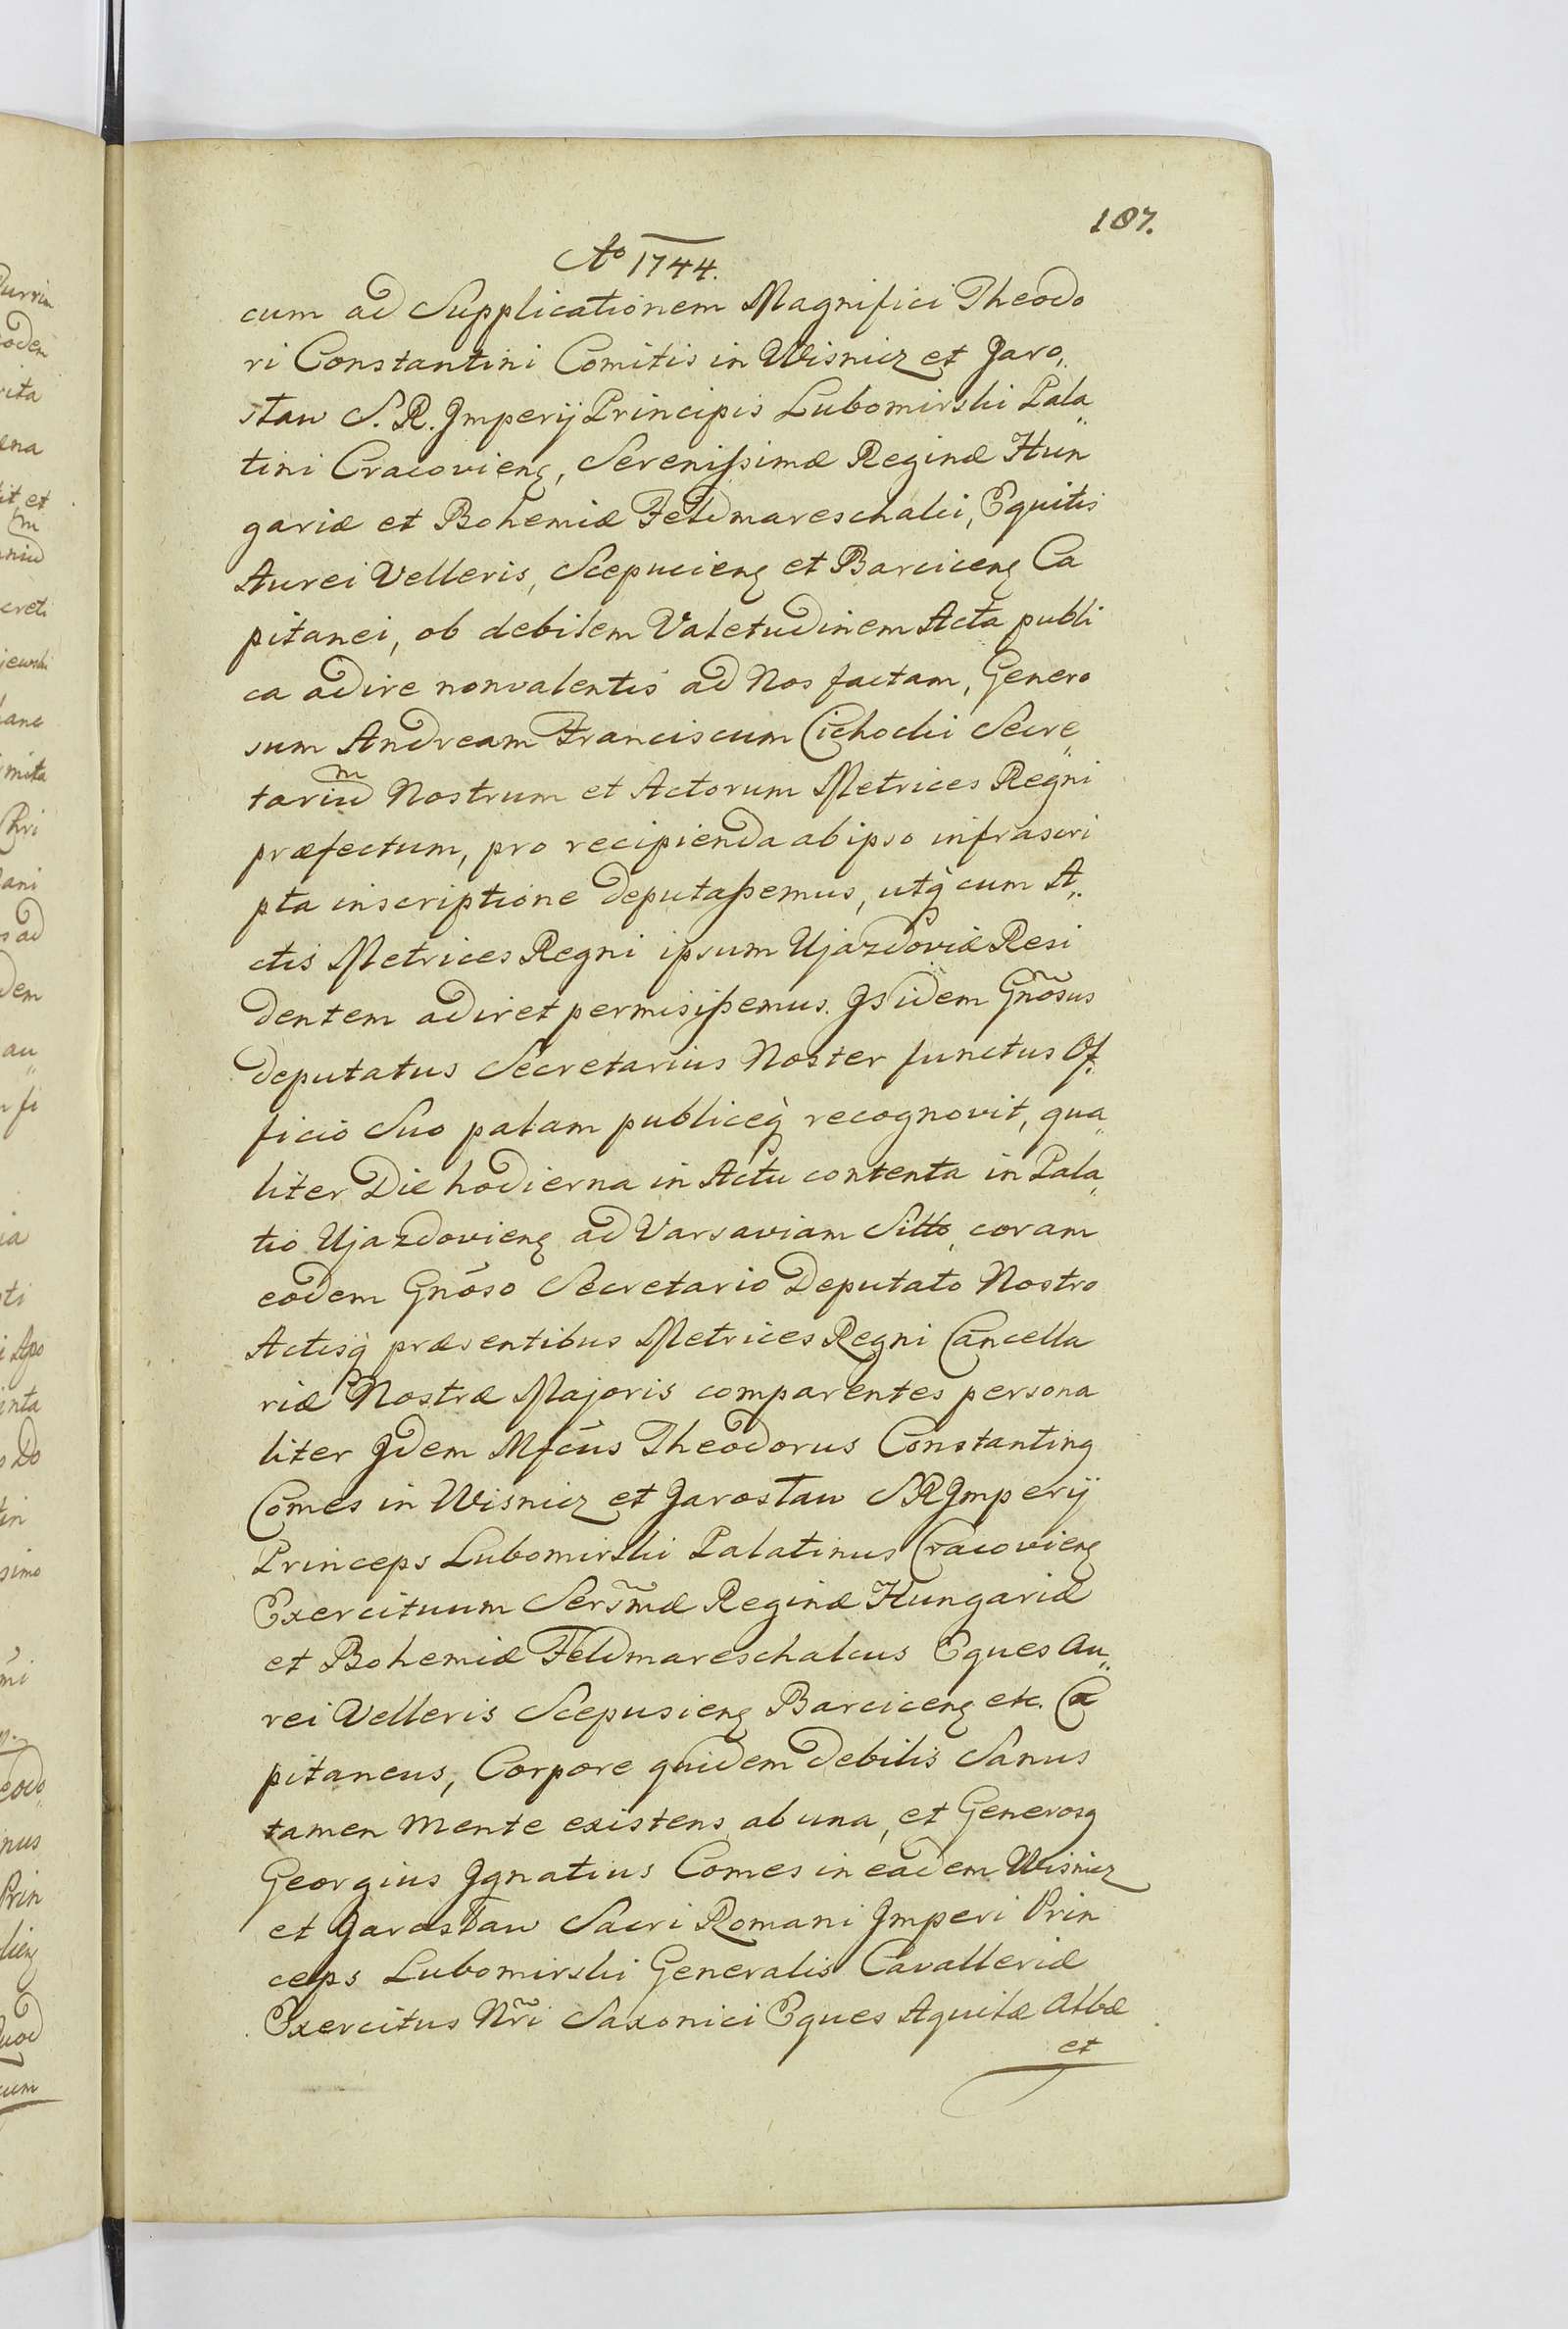 187.
Ao 1744.
cum ad Supplicationem Magnifici Theodo
ri Constantini Comitis in Wisnicz et Jaro„
sław S. R. Jmperij Principis Lubomirski Pala„
tini Cracovienę, Serenißimæ Reginæ Hun
gariæ et Bohemiæ Feldmareschalci, Equitis
Aurei Velleris, Scepucienę et Barcicenę Ca
pitanei, ob debilem Valetudinem Acta publi
ca adire nonvalentis ad Nos factam, Genero
sum Andream Franciscum Cichocki Secre„
tariũm Nostrum et Actorum Metrices Regni
præfectum, pro recipienda ab ipso infrascri
pta inscriptione deputaßemus, utq̀ cum A„
ctis Metrices Regni ipsum Ujazdoviæ Resi
dentem adiret permisißemus. Js idem Gñosus
deputatus Secretarius Noster functus Of„
ficio Suo palam publiceq̀ recognovit, qua„
liter Die hodierna in Actu contenta in Pala„
tio Ujazdovienę ad Varsaviam Sitto, coram
eodem Gnõso Secretario Deputato Nostro
Actisq̀ præsentibus Metrices Regni Cancella
riæ Nostræ Majoris comparentes persona
liter Jdem Mfcus Theodorus Constantinę
Comes in Wisnicz et Jarosław SRJmperij
Princeps Lubomirski Palatinus Cracovienę
Exercituum Sersm̃æ Reginæ Hungariæ
et Bohemiæ Feldmareschalcus Eques Au„
rei Velleris Scepusienę Barcicenę etc. Ca
pitaneus, Corpore quidem debilis Sanus
tamen mente existens ab una, et Generosę
Georgius Jgnatius Comes in eadem Wisnicz
et Jarosław Sacri Romani Jmperi Prin
ceps Lubomirski Generalis Cavalleriæ
Exercitus Nr̃i Saxonici Eques Aquilæ Albæ
et